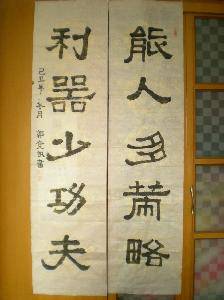 能人多策略
利器少功夫
己丑年冬月 書